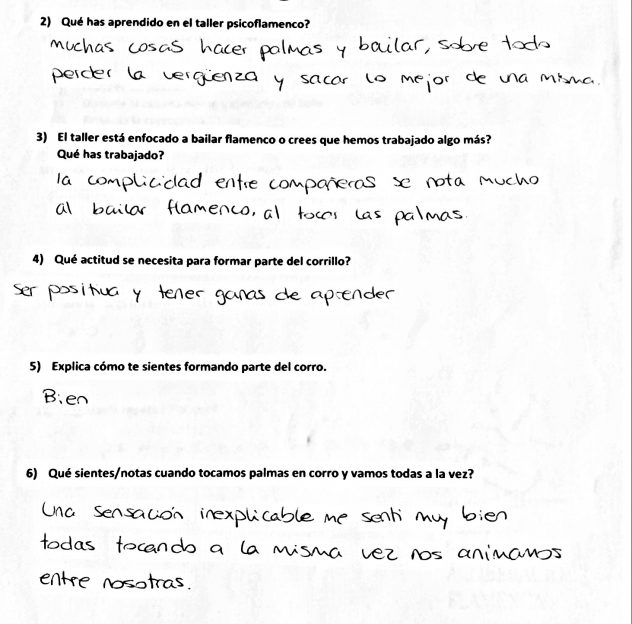 2) Qué has aprendido en el taller psicoflamenco?
muchas cosas hacer palmas y bailar, sobre todo
perder la vergüenza y sacar lo mejor de una misma.
3) El taller está enfocado a bailar flamenco o crees que hemos trabajado algo más?
Qué has trabajado?
la complicidad entre compañeras se nota mucho
al bailar flamenco, al tocar las palmas.
4) Qué actitud se necesita para formar parte del corrillo?
ser positiva y tener ganas de aprender
5) Explica cómo te sientes formando parte del corro.
Bien
6) Qué sientes/notas cuando tocamos palmas en corro y vamos todas a la vez?
Una sensación inexplicable me sentí muy bien
todas tocando a la misma vez nos animamos
entre nosotras.